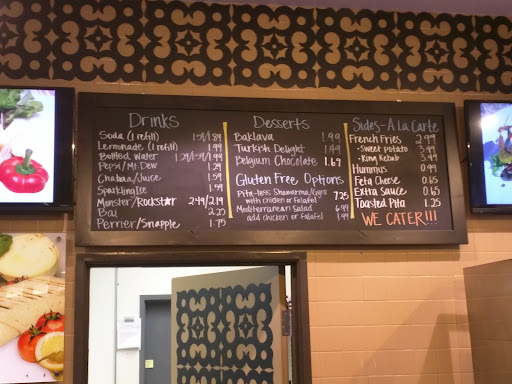 Drinks
Soda (1 refill) 1.59/1.89
Lemonade (1 refill) 1.99
Bottled Water 1.29/1.59/1.99
Pepsi/Mt. Dew 1.29
Juice 1.59
Sparkling Ice 1.59
Monster/Rockstar 2.49/2.19
Bai 2.25
Perrier/Snapple 1.75
Desserts
Baklava 1.99
Turkish Delight 1.49
Belgium Chocolate 1.69
Gluten Free Options
Pita-less Shawarma/Gyro 7.25
with chicken or falafel
Mediterranean Salad 6.99
add chicken or falafel 1.99
Sides-A La Carte
French Fries 2.99
-Sweet potato 3.99
-King Kebab 3.99
Hummus 0.99
Feta Cheese 0.65
Extra Sauce 0.65
Toasted Pita 1.25
WE CATER!!!